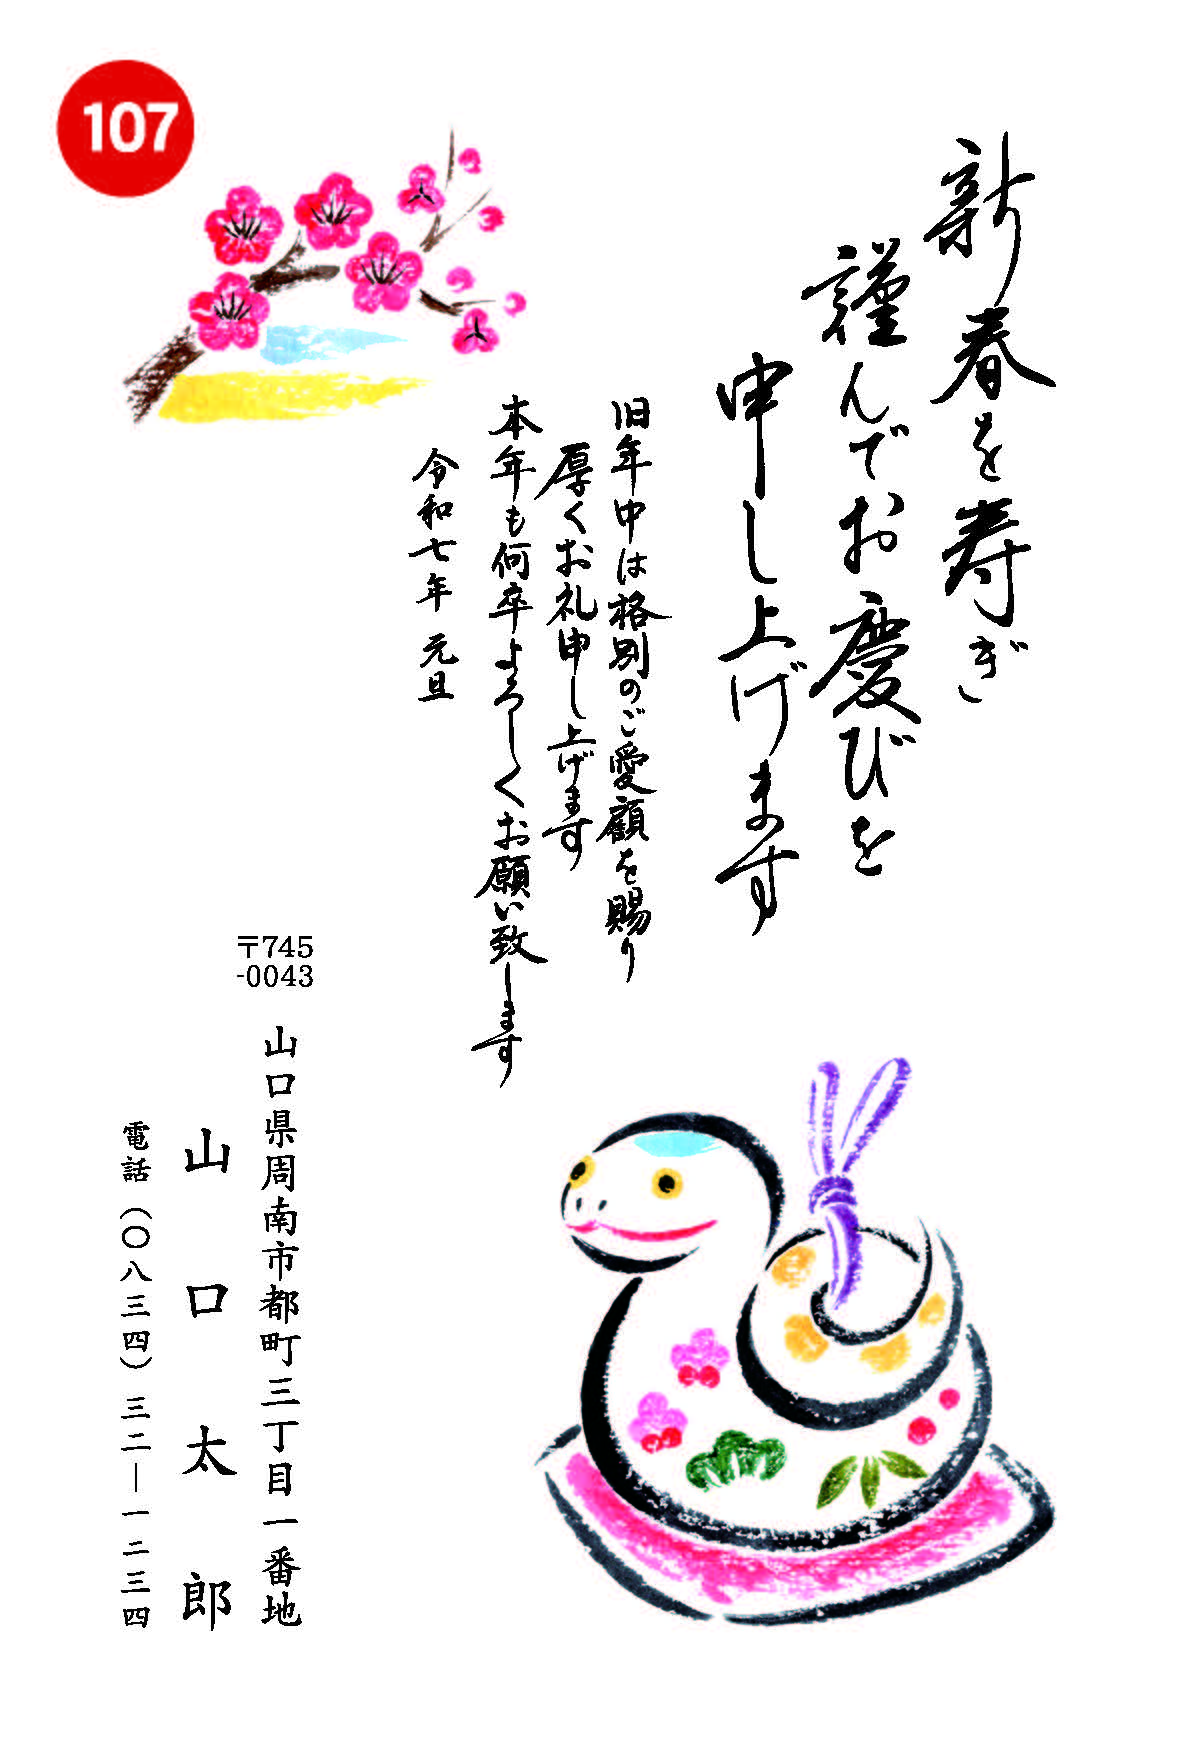 107
新春を寿ぎ
謹んでお慶びを
申し上げます
旧年中は格別のご愛顧を賜り
厚くお礼申し上げます
本年も何卒よろしくお願い致します
令和七年 元旦
〒745
-0043
山口県周南市都町三丁目一番地
山口太郎
電話(〇八三四)三二―一二三四